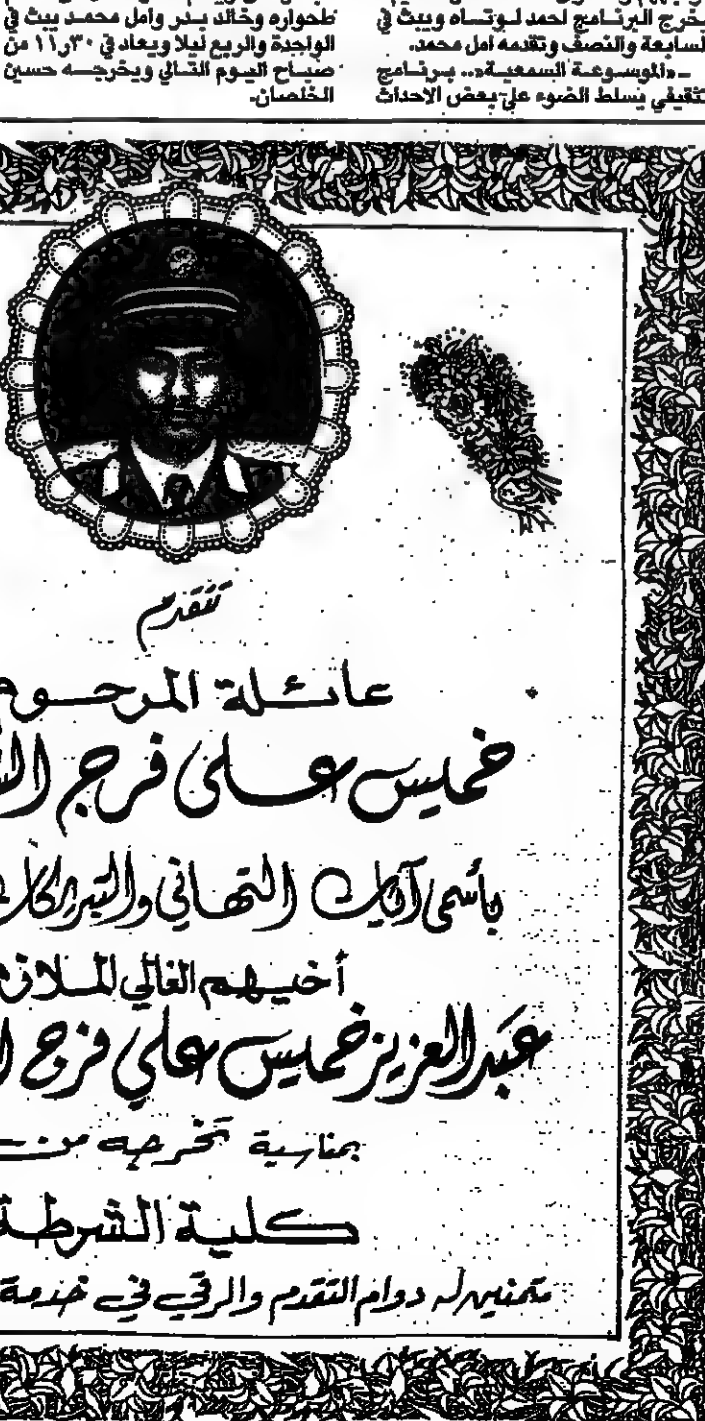 مخرج البرنامج احمد لوتساه ويبث في
السابعة والنصف وتقدمه امل محمد.
ـ «الموسوعة السمعية».. برنامج
تثقيفي يسلط الضوء على بعض الاحداث
طحواره وخالد بدر وامل محمد يبث في
الواحدة والربع ليلا ويعاد في ١١٫٣٠ من
صباح اليوم التالي ويخرجه حسين
الخلصان.
تتقدم
عائلة المرحوم
خميس علي فرج
بأسمى آيات التهاني والتبريكات
أخيهم الغالي الملازم
عبدالعزيز خميس علي فرج
بمناسبة تخرجه من
كلية الشرطة
متمنين له دوام التقدم والرقي في خدمة